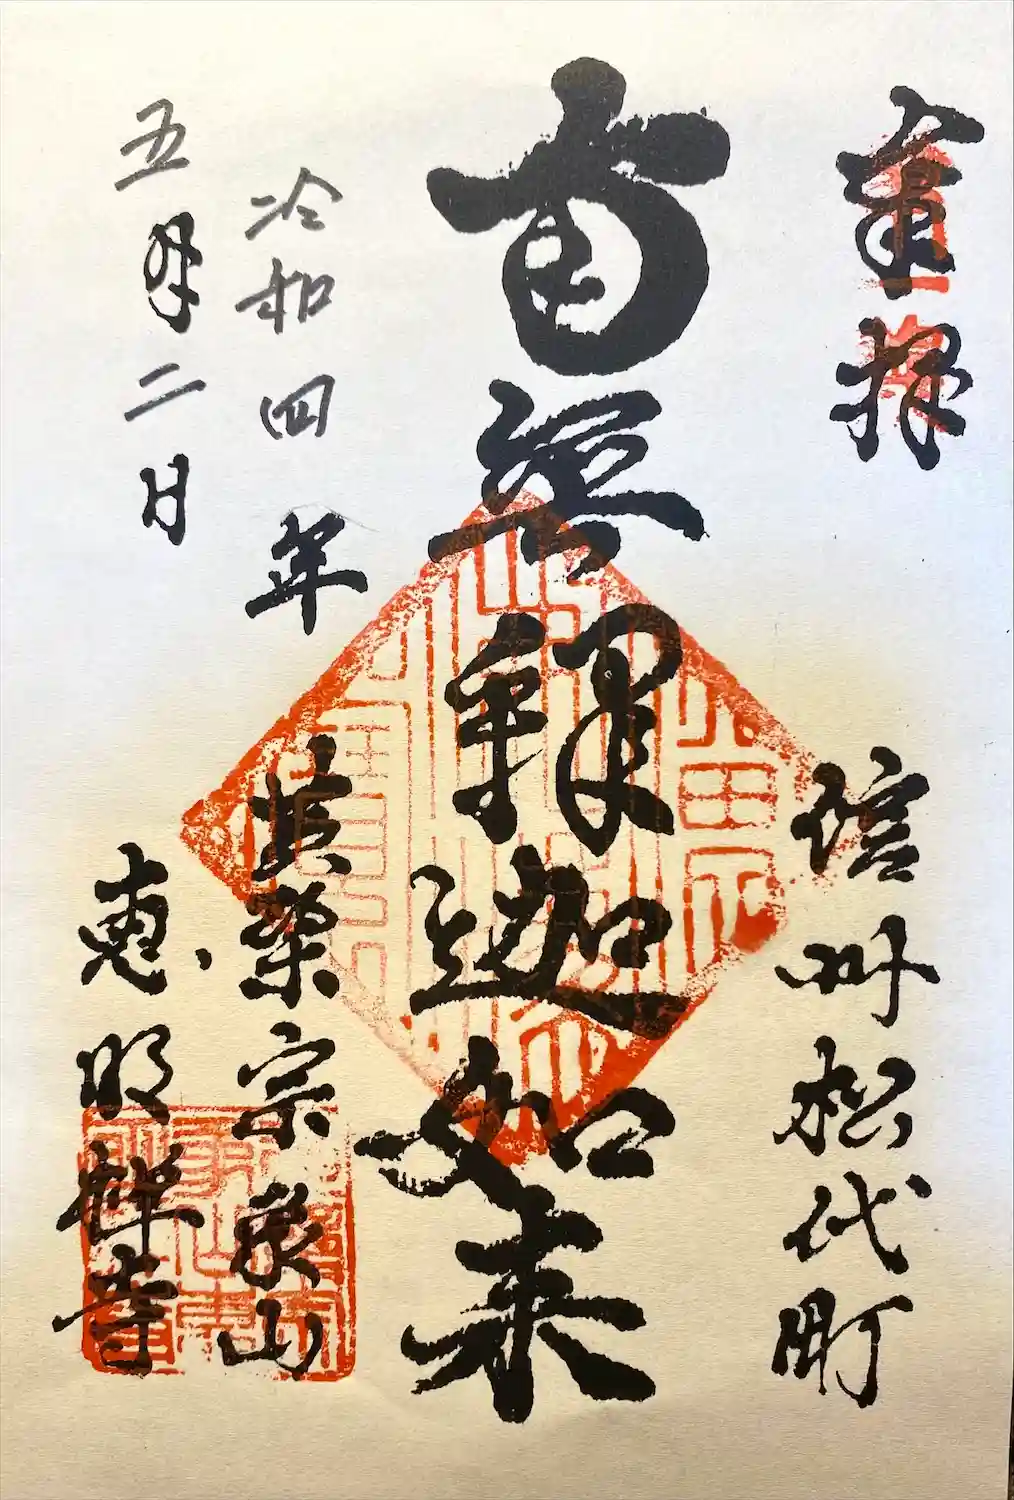 奉拝
信州松代町
南無釈迦如来
令和四年
五月二日
黄檗宗 象山
恵明禅寺